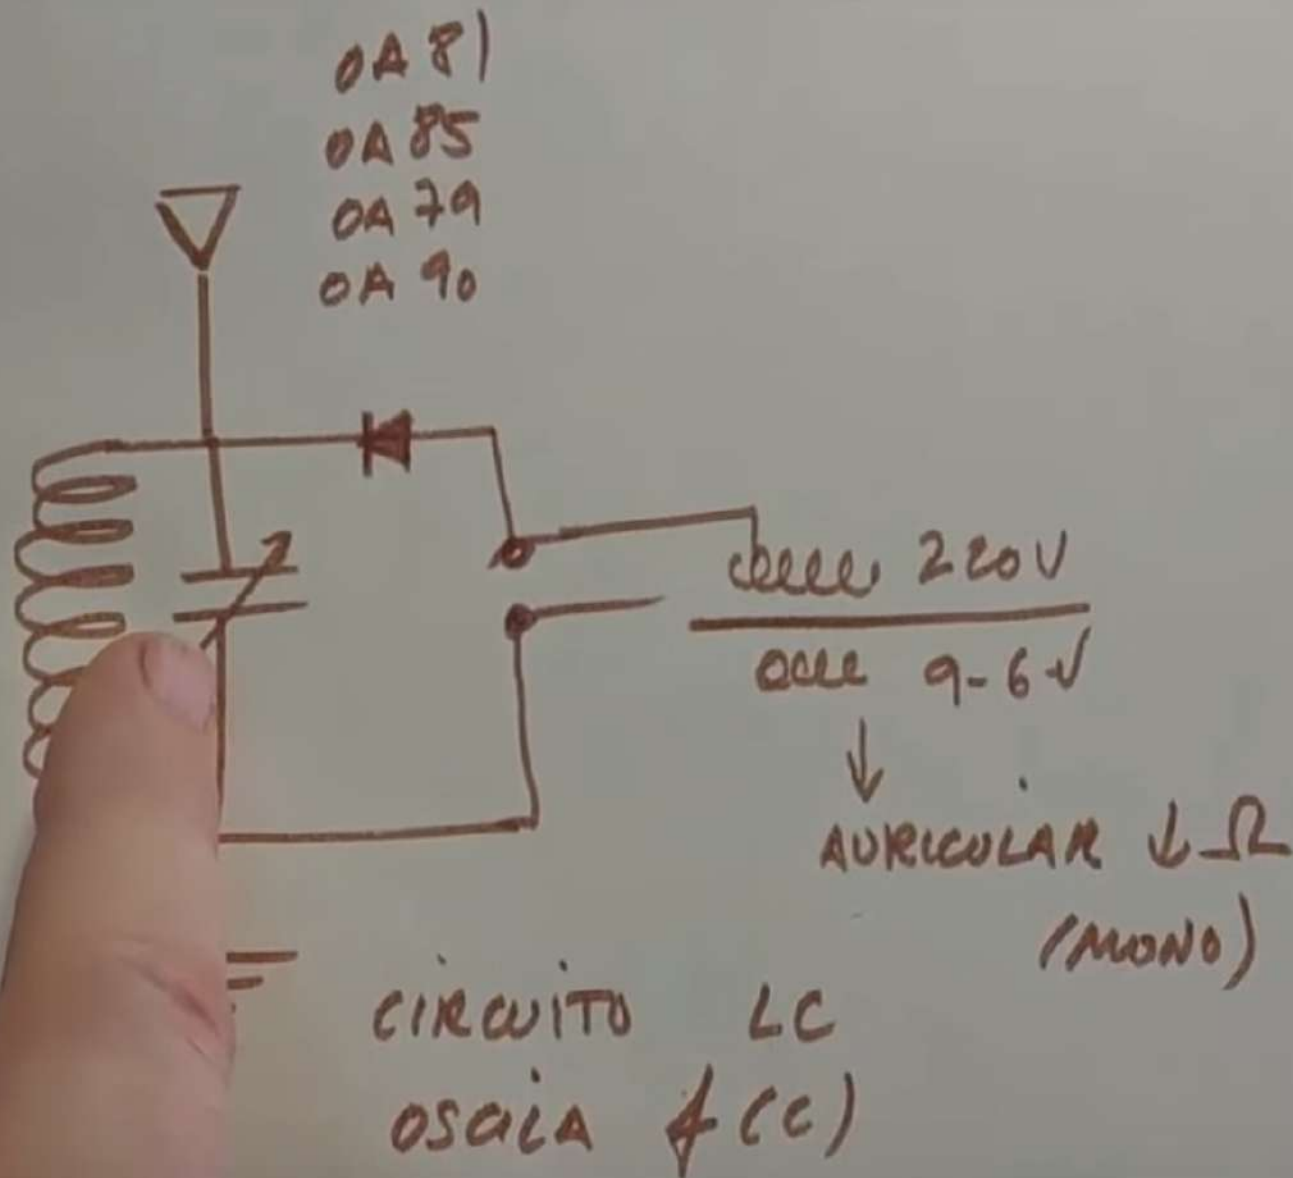 OA 81
OA 85
OA 79
OA 90
220V
9-6V
↓
AURICULAR ↓ Ω
(MONO)
CIRCUITO LC
OSCILA f(C)